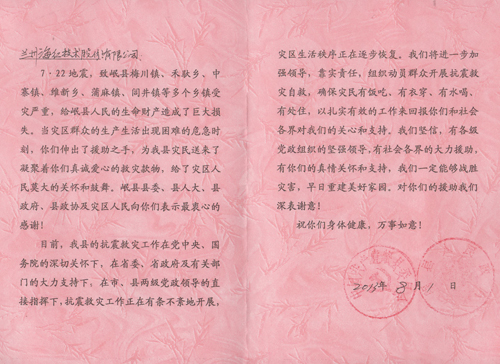 兰州海红技术股份有限公司:
7·22地震,致岷县梅川镇、禾驮乡、中
寨镇、维新乡、蒲麻镇、闾井镇等多个乡镇受
灾严重,给岷县人民的生命财产造成了巨大损
失。当灾区群众的生产生活出现困难的危急时
刻,你们伸出了援助之手,为我县灾民送来了
凝聚着你们真诚爱心的救灾款物,给了灾区人
民莫大的关怀和鼓舞。岷县县委、县人大、县
政府、县政协及灾区人民向你们表示最衷心的
感谢!
目前,我县的抗震救灾工作在党中央、国
务院的深切关怀下,在省委、省政府及有关部
门的大力支持下,在市、县两级党政领导的直
接指挥下,抗震救灾工作正在有条不紊地开展,
灾区生活秩序正在逐步恢复。我们将进一步加
强领导,靠实责任,组织动员群众开展抗震救
灾自救,确保灾民有饭吃,有衣穿、有水喝、
有处住,以扎实有效的工作来回报你们和社会
各界对我们的关心和支持。我们坚信,有各级
党政组织的坚强领导,有社会各界的大力援助,
有你们的真情关怀和支持,我们一定能够战胜
灾害,早日重建美好家园。对你们的援助我们
深表谢意!
祝你们身体健康,万事如意!
2013年8月1日